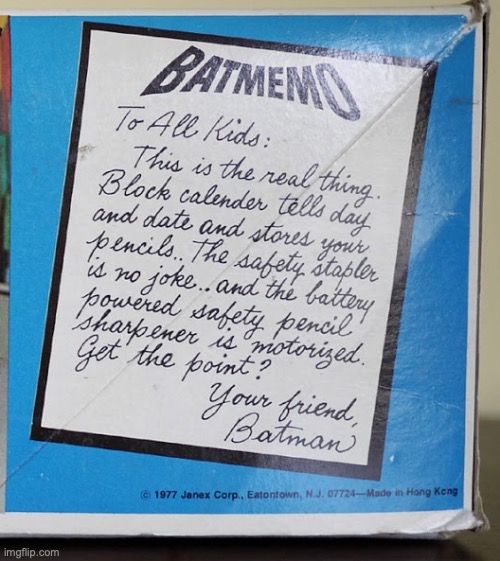 BATMEMO
To All Kids:
This is the real thing.
Block calender tells day
and date and stores your
pencils.. The safety stapler
is no joke.. and the battery
powered safety pencil
sharpener is motorized.
Get the point?
Your friend,
Batman
© 1977 Janex Corp., Eatontown, N.J. 07724—Made in Hong Kong
imgflip.com